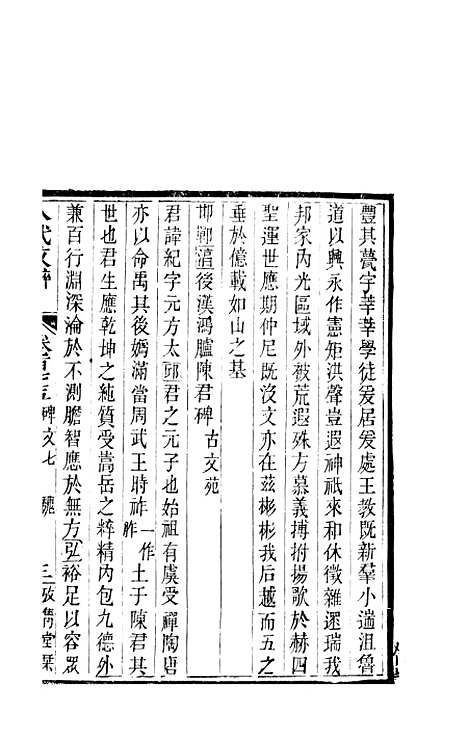 豐其甍宇莘莘學徒爰居爰處王教既新羣小遄沮魯
道以興永作憲矩洪聲豈遐神祇來和休徵雜遝瑞我
邦家內光區域外被荒遐殊方慕義搏拊揚歌於赫四
聖運世應期仲尼既沒文亦在茲彬彬我后越而五之
垂於億載如山之基
邯鄲湻後漢鴻臚陳君碑 古文苑
君諱紀字元方太邱君之元子也始祖有虞受禪陶唐
亦以命禹其後嬀滿當周武王時祚一作胙土于陳君其
世也君生應乾坤之純質受嵩岳之粹精內包九德外
兼百行淵深淪於不測膽智應於無方弘裕足以容眾
八代文粹 卷 碑文七 魏 三 攷雋堂栞